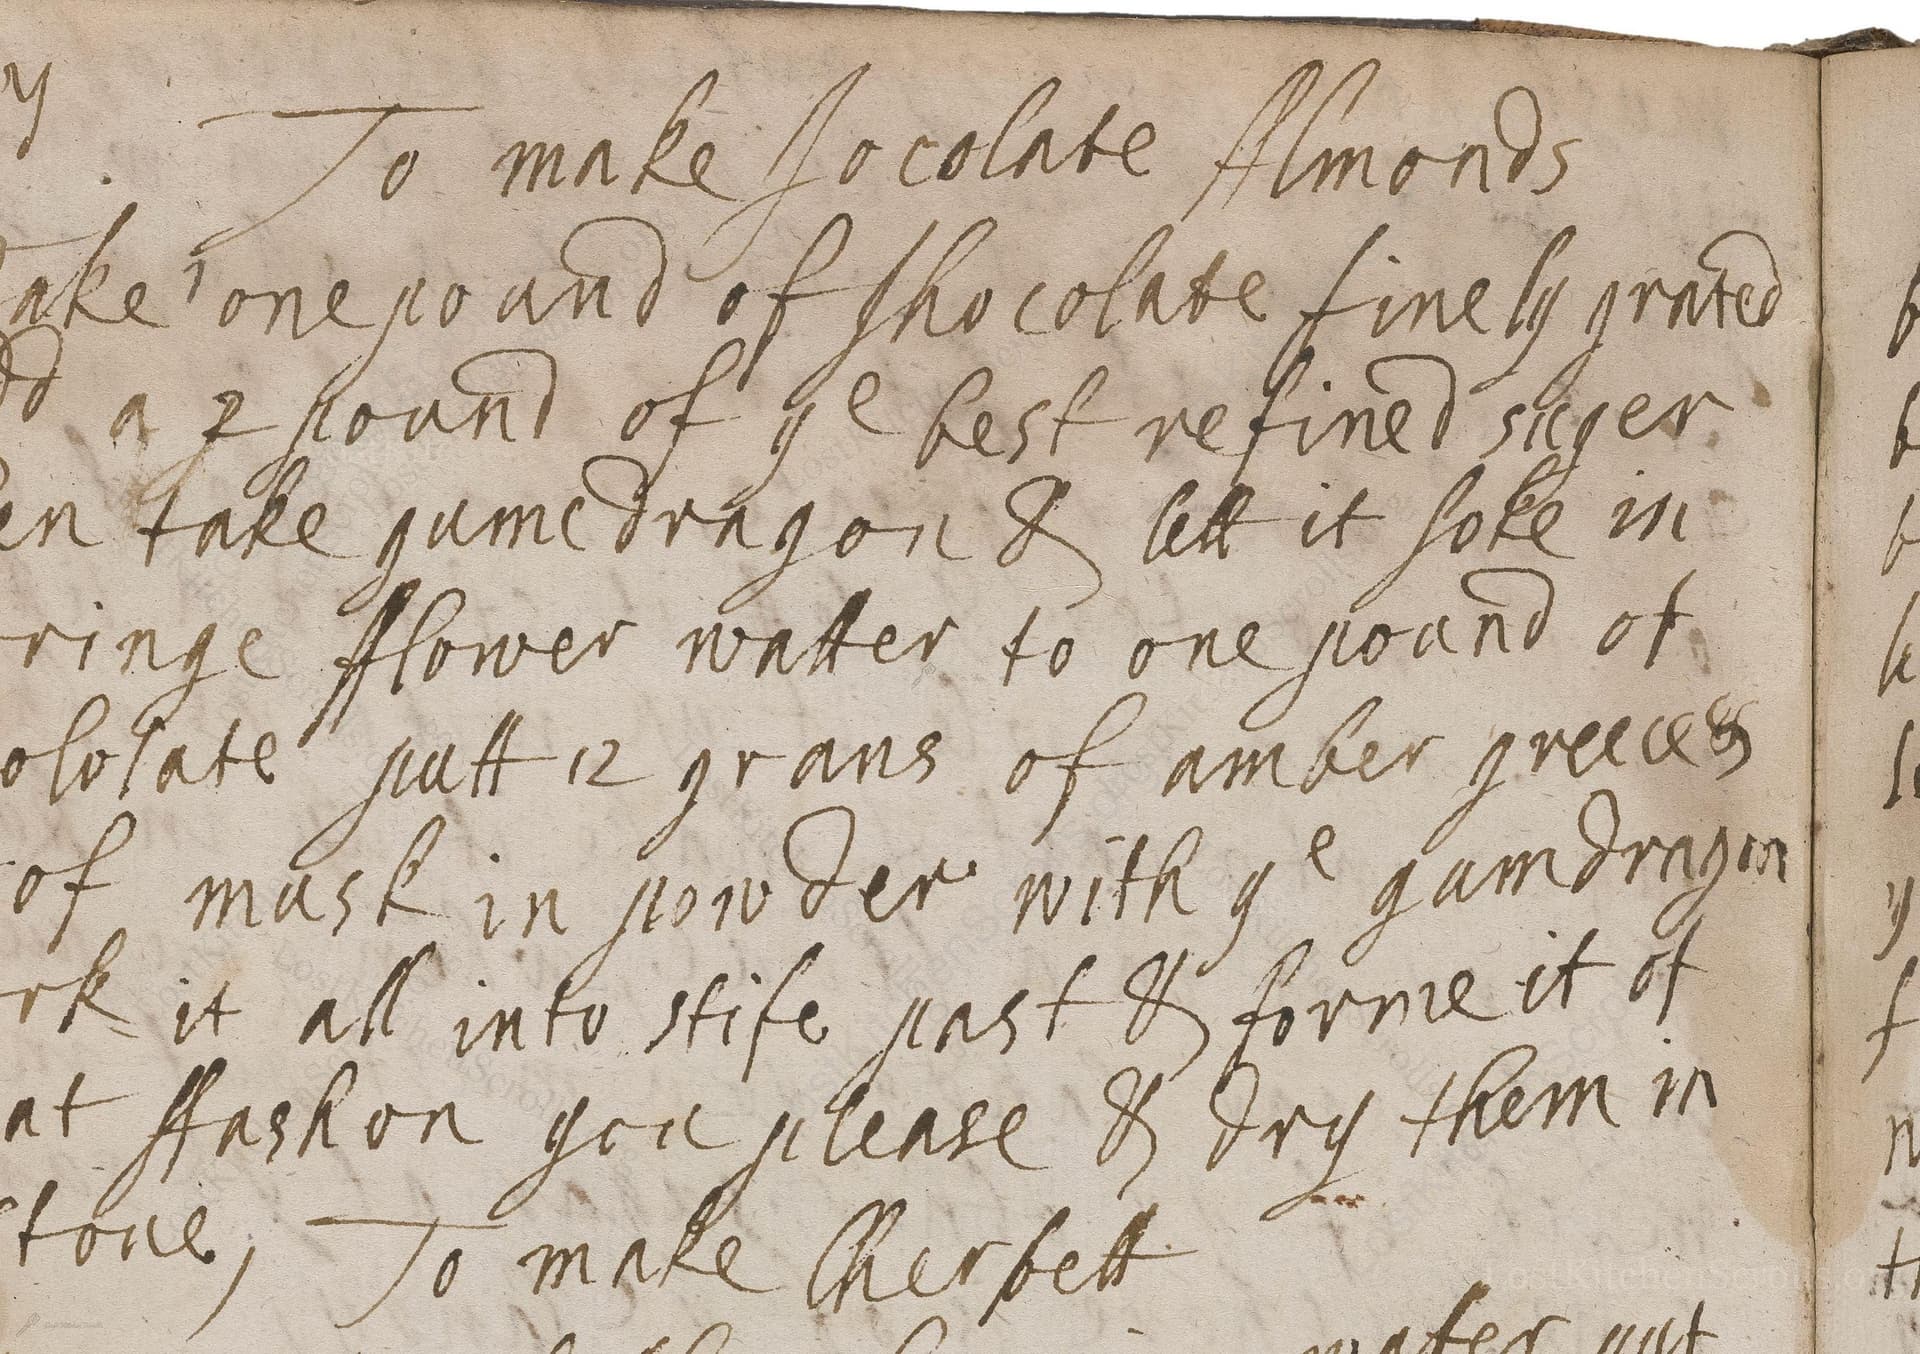 y
To make Jocolate Almonds
ake one pound of Jhocolate finely grated
dd a 2 pound of ye best refined suger
en take gumedragon & lett it soke in
ringe fflower watter to one pound of
ololate putt 12 grans of amber greece &
of musk in powder with ye gumdragon
rk it all into stife past & forme it of
at ffashon you please & dry them in
stove, To make Cherbett
water put